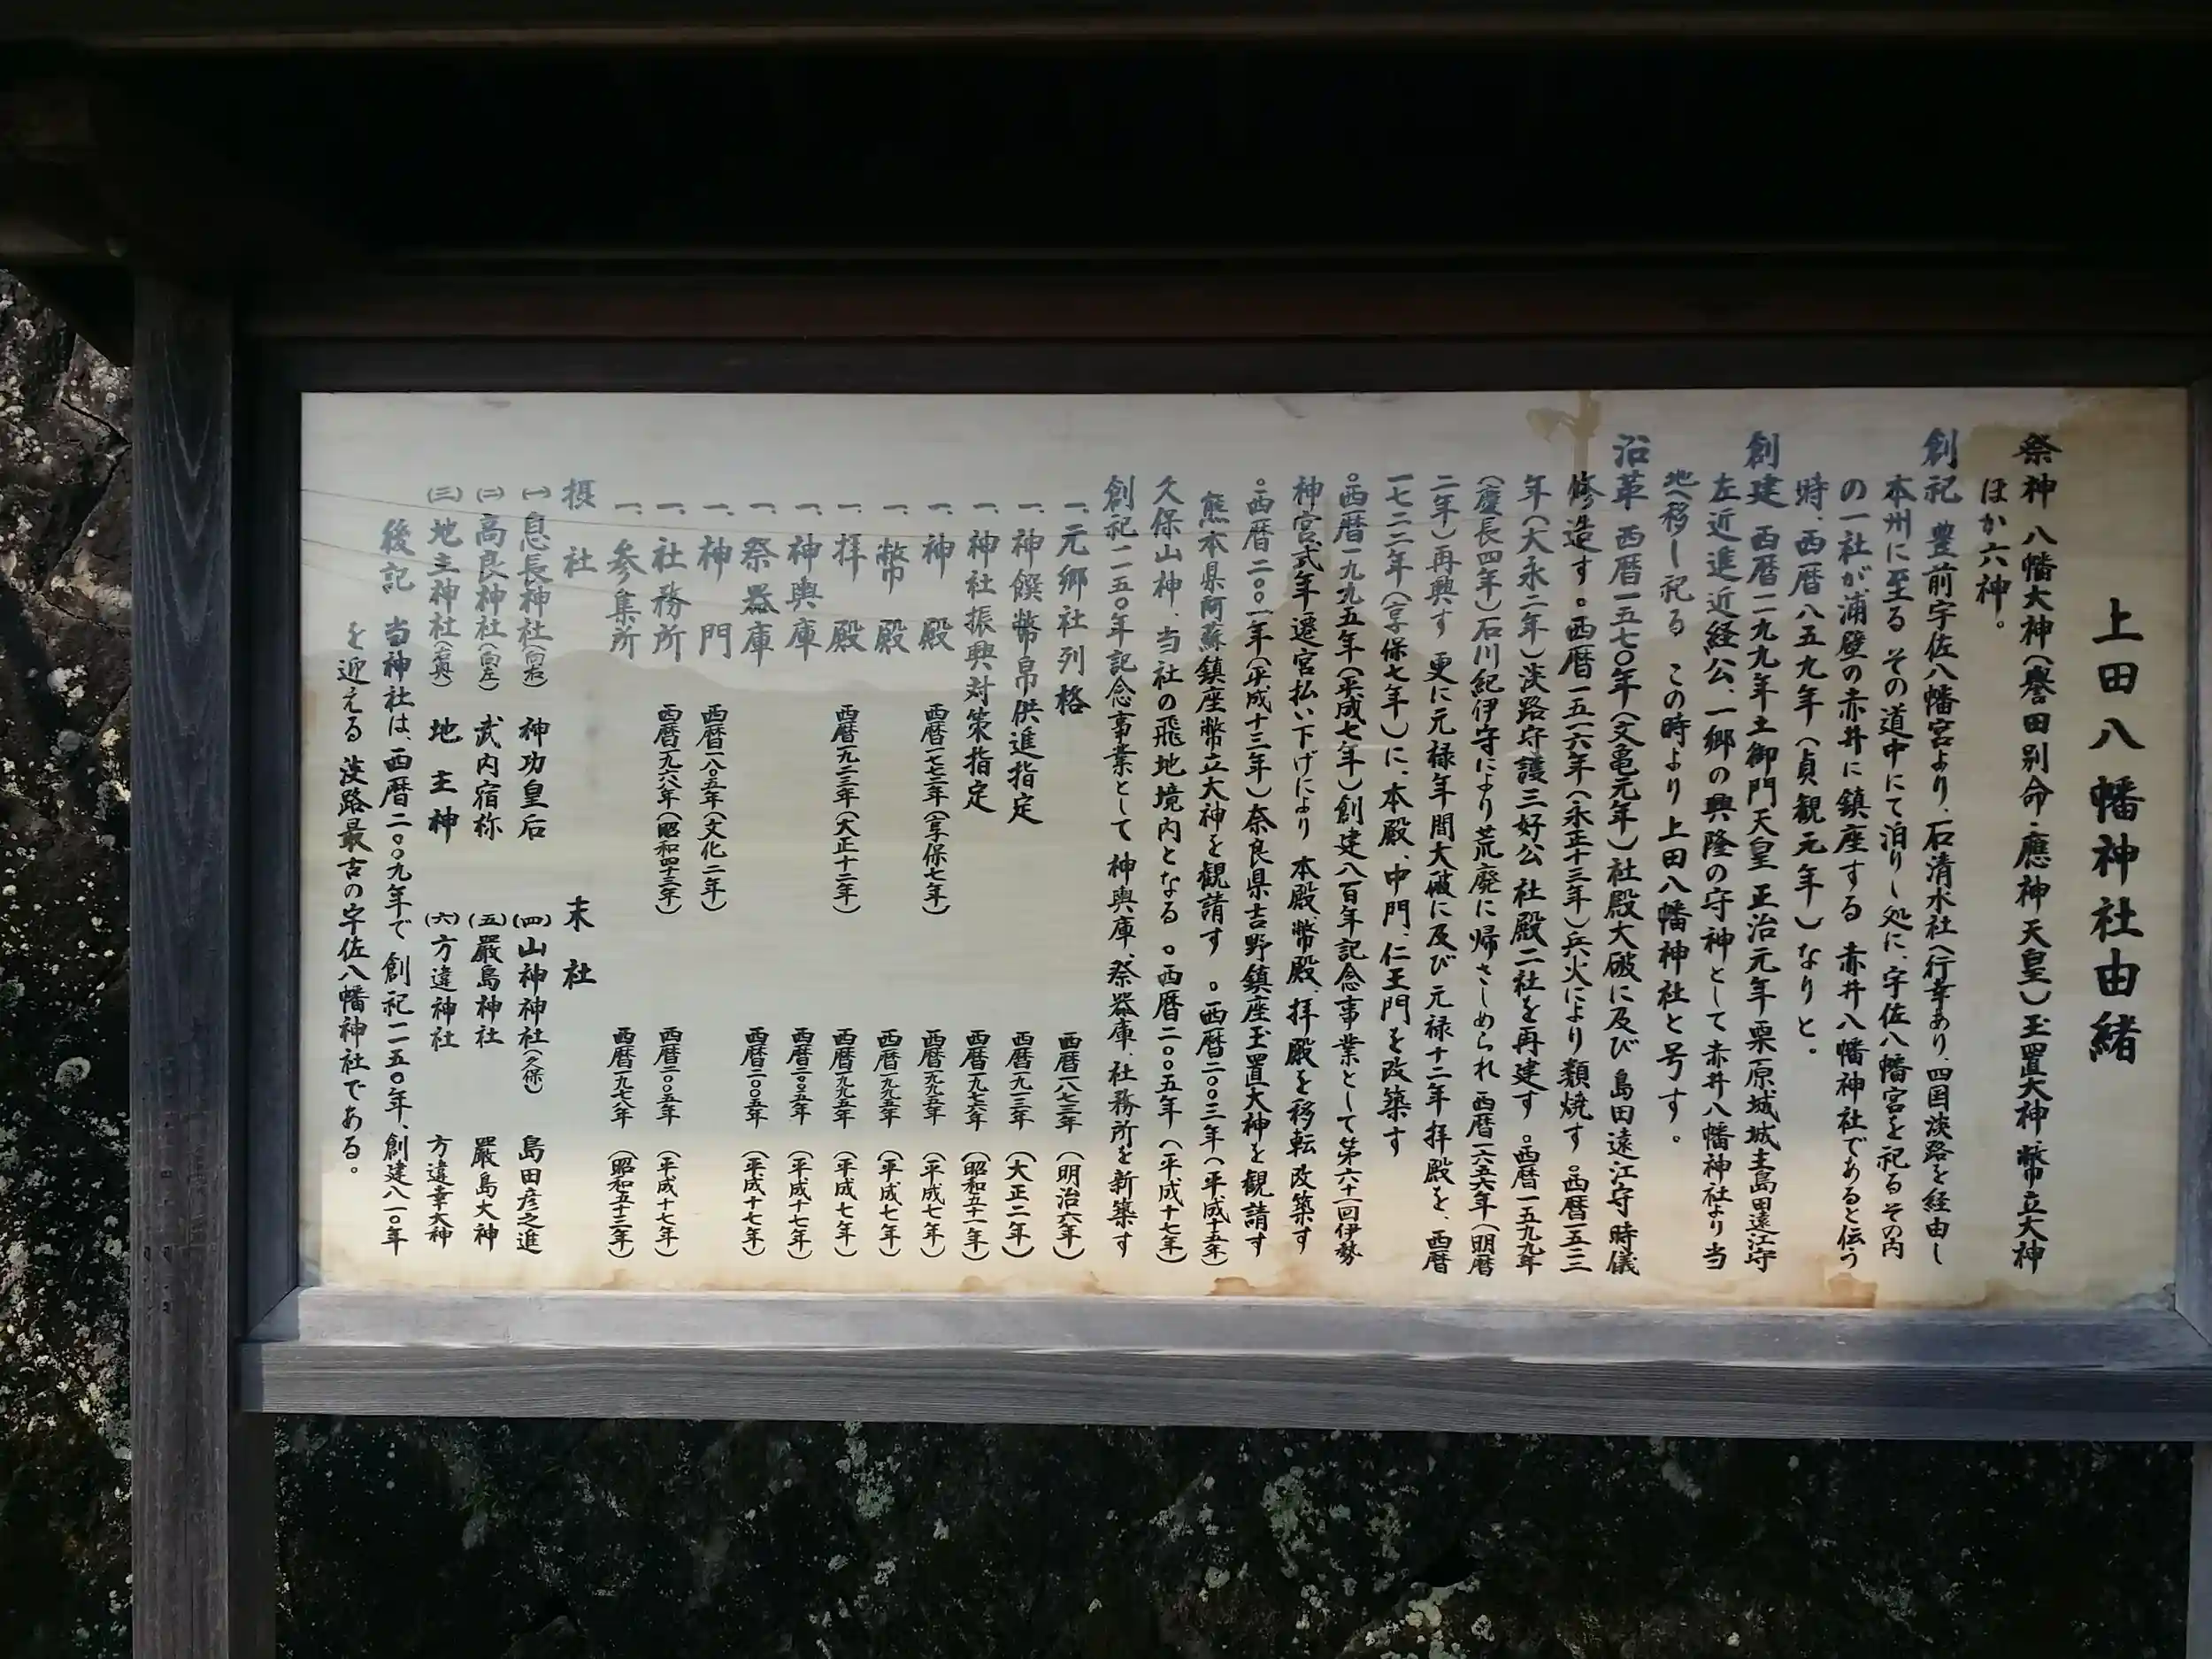 上田八幡神社由緒
祭神 八幡大神(譽田別命・應神天皇)玉置大神 幣立大神
ほか六神。
創祀 豊前宇佐八幡宮より、石清水社へ行幸あり、四国淡路を経由し
本州に至る その道中にて泊りし処に、宇佐八幡宮を祀る その内
の一社が浦壁の赤井に鎮座する 赤井八幡神社であると伝う
時、西暦八五九年(貞観元年)なりと。
創建 西暦一一九九年土御門天皇 正治元年栗原城城主島田遠江守
左近進近経公、一郷の興隆の守神として赤井八幡神社より当
地へ移し祀る この時より上田八幡神社と号す。
沿革 西暦一五七〇年(文亀元年)社殿大破に及び 島田遠江守時儀
修造す。西暦一五一六年(永正十三年)兵火により類焼す。西暦一五二三
年(大永二年)淡路守護三好公 社殿二社を再建す。西暦一五九九年
(慶長四年)石川紀伊守により荒廃に帰さしめられ 西暦一六五六年(明暦
二年)再興す 更に元禄年間大破に及び 元禄十二年拝殿を、西暦
一七二二年(享保七年)に、本殿、中門、仁王門を改築す
。西暦一九九五年(平成七年)創建八百年記念事業として第六十一回伊勢
神宮式年遷宮払い下げにより 本殿、幣殿、拝殿を移転改築す
。西暦二〇〇一年(平成十三年)奈良県吉野鎮座玉置大神を観請す
熊本県阿蘇鎮座幣立大神を観請す 。西暦二〇〇三年(平成十五年)
久保山神、当社の飛地境内となる 。西暦二〇〇五年(平成十七年)
創祀一一五〇年記念事業として 神輿庫、祭器庫、社務所を新築す
一、元郷社列格 西暦一八七三年(明治六年)
一、神饌幣帛供進指定 西暦一九一三年(大正二年)
一、神社振興対策指定 西暦一九七六年(昭和五十一年)
一、神殿 西暦一七二二年(享保七年) 西暦一九九五年(平成七年)
一、幣殿 西暦一九九五年(平成七年)
一、拝殿 西暦一九二三年(大正十二年) 西暦一九九五年(平成七年)
一、神輿庫 西暦二〇〇五年(平成十七年)
一、祭器庫 西暦二〇〇五年(平成十七年)
一、神門 西暦一八〇五年(文化二年)
一、社務所 西暦一九六八年(昭和四十三年) 西暦二〇〇五年(平成十七年)
一、参集所 西暦一九七八年(昭和五十三年)
摂社 末社
(一)息長神社(向右) 神功皇后 (四)山神神社(久保) 島田彦之進
(二)高良神社(向左) 武内宿祢 (五)嚴島神社 嚴島大神
(三)地主神社(右奥) 地主神 (六)方違神社 方違幸大神
後記 当神社は、西暦二〇〇九年で 創祀一一五〇年、創建八一〇年
を迎える 淡路最古の宇佐八幡神社である。